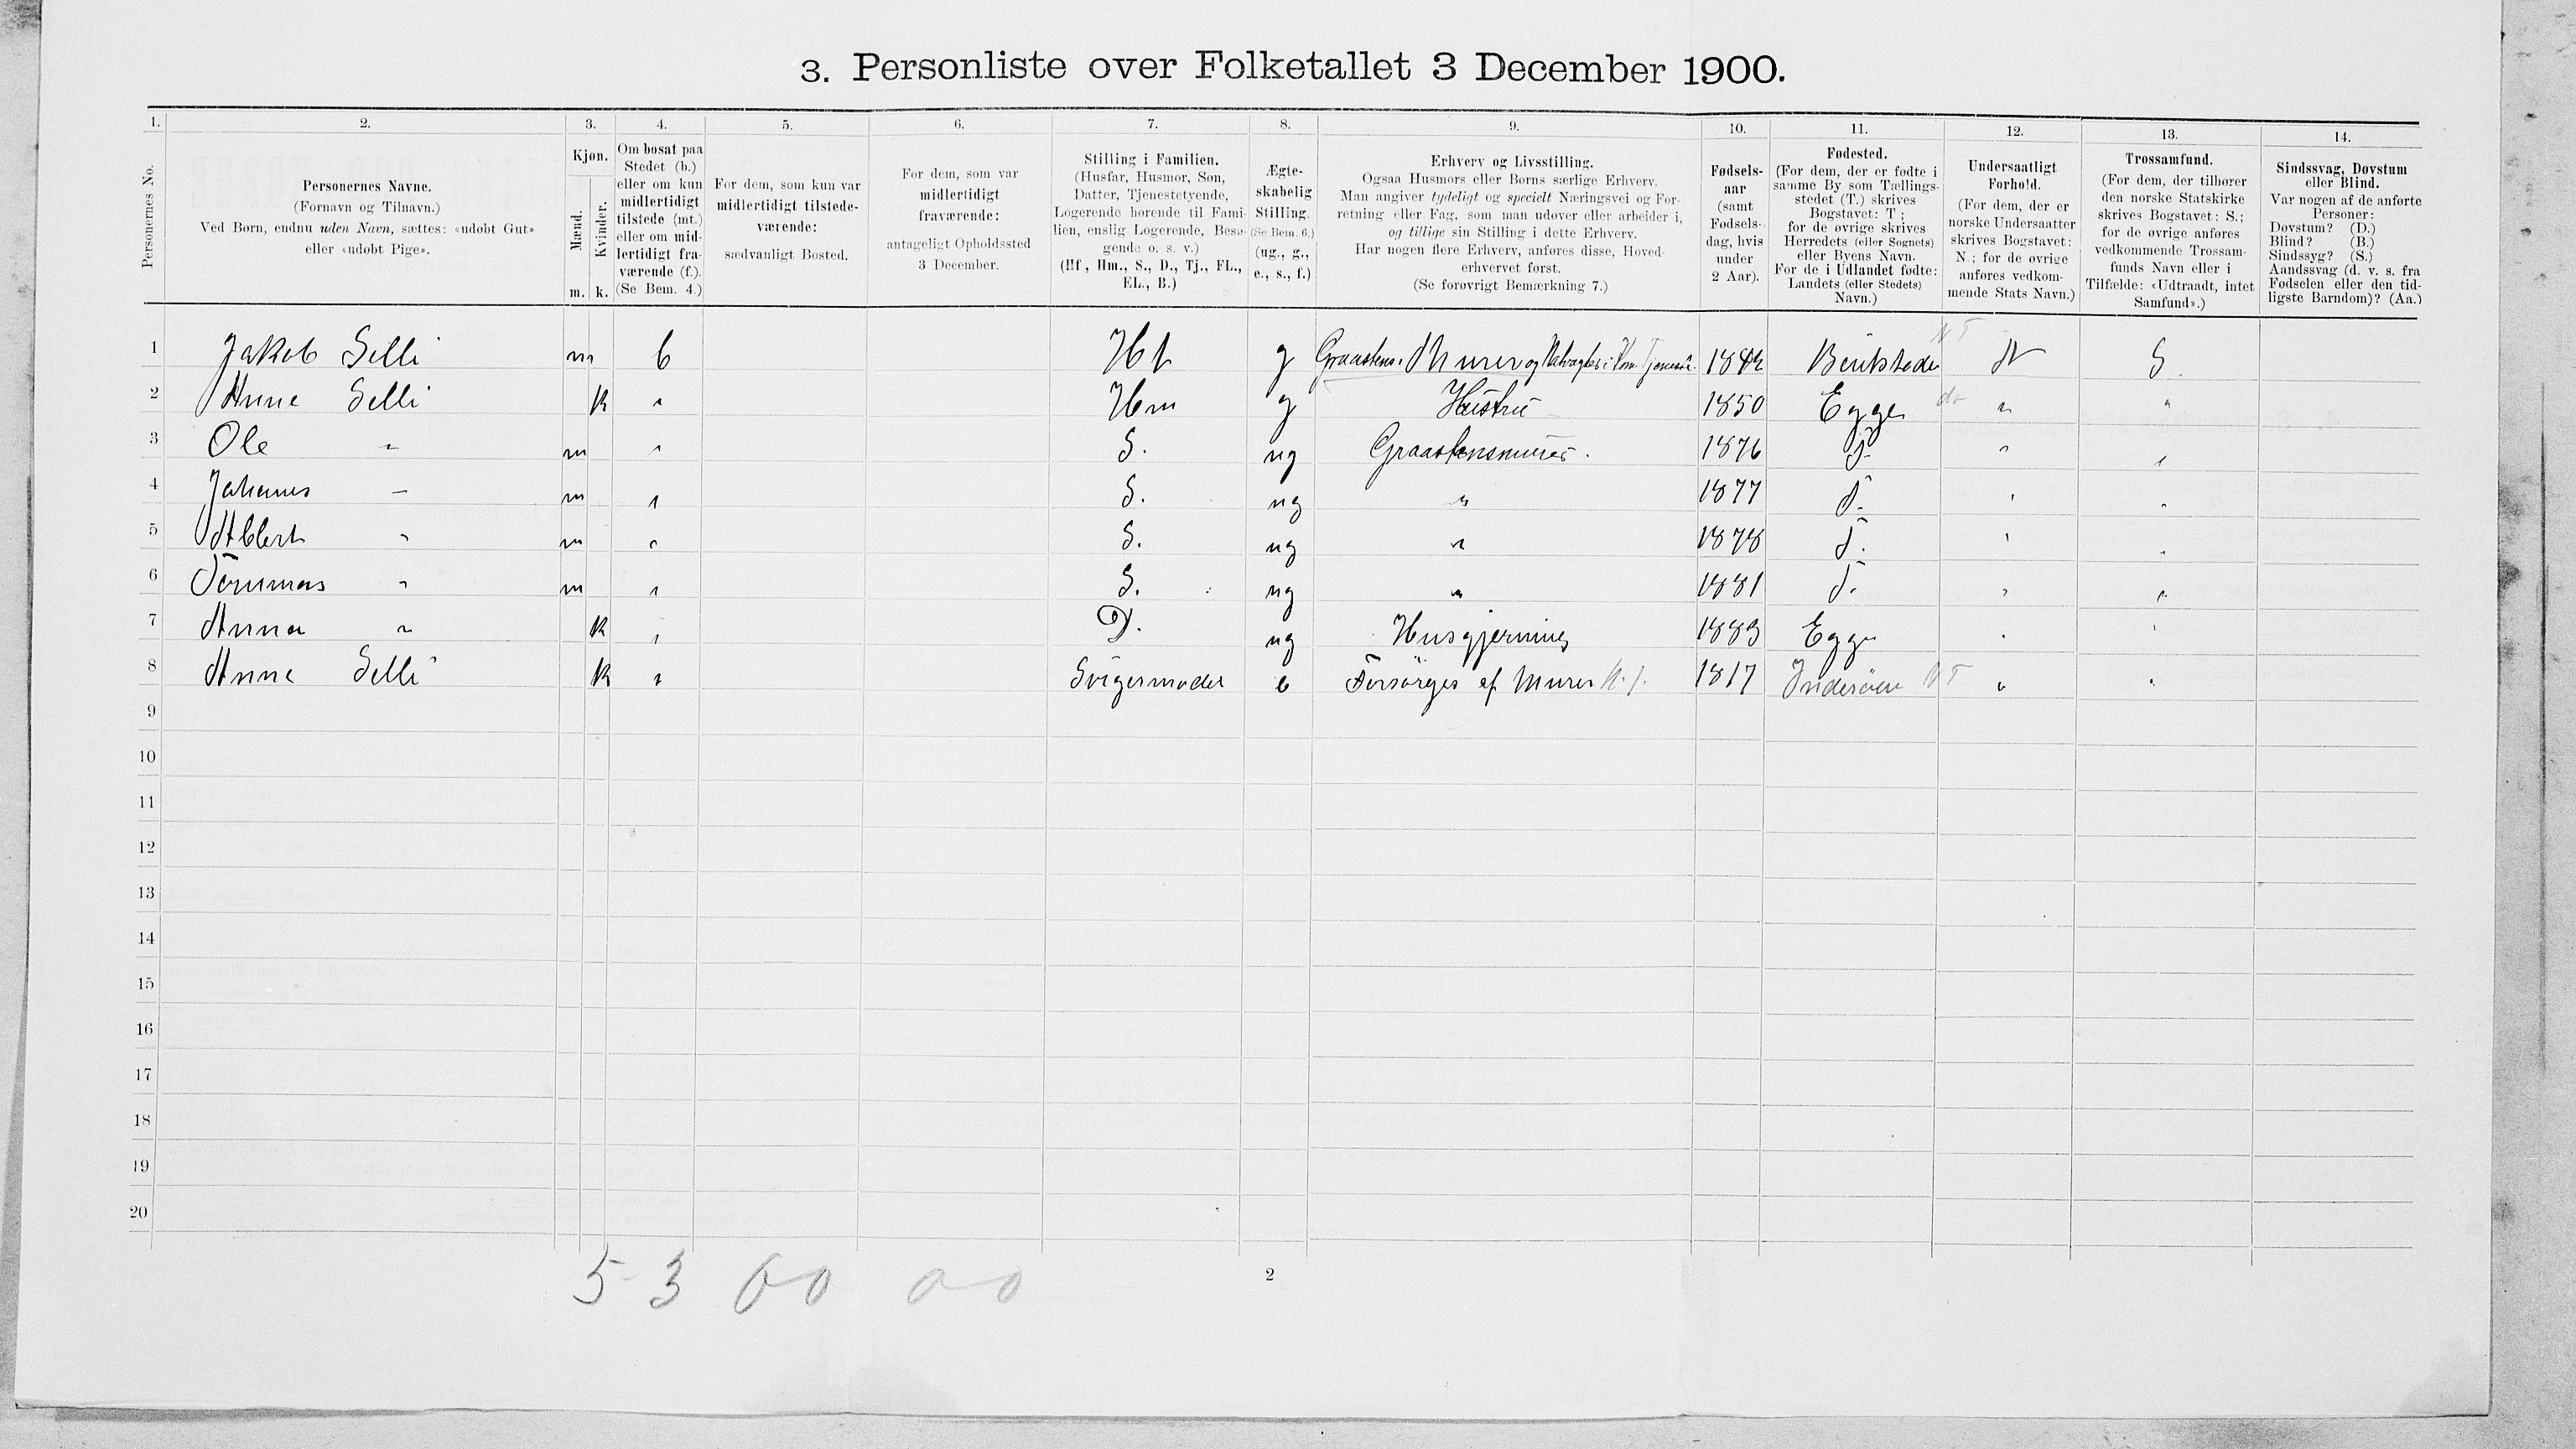 3. Personliste over Folketallet 3 December 1900.
1. 2. 3. 4. 5. 6. 7. 8. 9. 10. 11. 12. 13. 14.
Personernes No.
Personernes Navne.
(Fornavn og Tilnavn.)
Ved Børn, endnu uden Navn, sættes: «udøbt Gut»
eller «udøbt Pige».
Kjøn.
Mænd.
Kvinder.
m. k.
Om bosat paa
Stedet (b.)
eller om kun
midlertidigt
tilstede (mt.)
eller om mid-
lertidigt fra-
værende (f.).
(Se Bem. 4.)
For dem, som kun var
midlertidigt tilstede-
værende:
sædvanligt Bosted.
For dem, som var
midlertidigt
fraværende:
antageligt Opholdssted
3 December.
Stilling i Familien.
(Husfar, Husmor, Søn,
Datter, Tjenestetyende,
Logerende hørende til Fami-
lien, enslig Logerende, Besø-
gende o. s. v.)
(Hf, Hm., S., D., Tj., FL.,
EL., B.)
Ægte-
skabelig
Stilling.
(Se Bem. 6.)
(ug., g.,
e., s., f.)
Erhverv og Livsstilling.
Ogsaa Husmors eller Børns særlige Erhverv.
Man angiver tydeligt og specielt Næringsvei og For-
retning eller Fag, som man udøver eller arbeider i,
og tillige sin Stilling i dette Erhverv.
Har nogen flere Erhverv, anføres disse, Hoved-
erhvervet først.
(Se forøvrigt Bemærkning 7.)
Fødsels-
aar
(samt
Fødsels-
dag, hvis
under
2 Aar).
Fødested.
(For dem, der er fødte i
samme By som Tællings-
stedet (T.) skrives
Bogstavet: T;
for de øvrige skrives
Herredets (eller Sognets)
eller Byens Navn.
For de i Udlandet fødte:
Landets (eller Stedets)
Navn.)
Undersaatligt
Forhold.
(For dem, der er
norske Undersaatter
skrives Bogstavet:
N.; for de øvrige
anføres vedkom-
mende Stats Navn.)
Trossamfund.
(For dem, der tilhører
den norske Statskirke
skrives Bogstavet: S.;
for de øvrige anføres
vedkommende Trossam-
funds Navn eller i
Tilfælde: «Udtraadt, intet
Samfund».)
Sindssvag, Døvstum
eller Blind.
Var nogen af de anførte
Personer:
Døvstum? (D.)
Blind? (B.)
Sindssyg? (S.)
Aandssvag (d. v. s. fra
Fødselen eller den tid-
ligste Barndom)? (Aa.)
1 Jakob Selli m b Hf g Graastens Murer og 18 N S NT
2 Anne Selli k " Hm g Hustru 1850 Egge do " "
3 Ole " m " S. ug Graastensmurer. 1876 T. " "
4 Johanes " m " S. ug " 1877 T. " "
5 Albert " m " S. ug " 1878 T. " "
6 Tommas " m " S. ug " 1881 T. " "
7 Anna " k " D. ug Husgjerning 1883 Egge " "
8 Anne Selli k " Svigermoder e Forsørges af Murer 1817 Inderøen NT " "
9
10
11
12
13
14
15
16
17
18
19
20
5 3 00 00
2